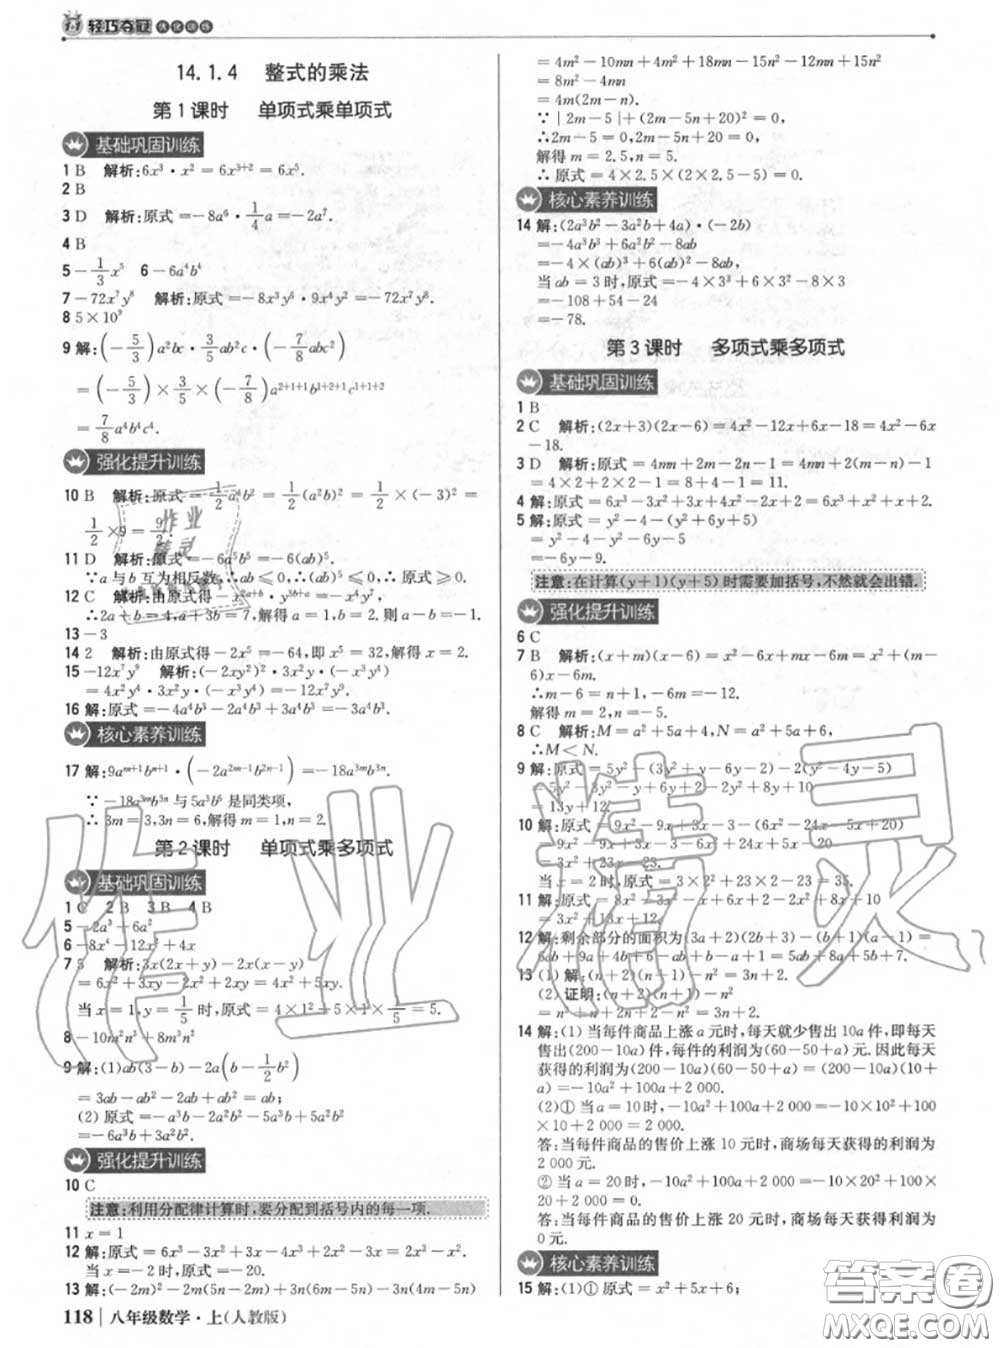 轻巧夺冠 优化训练
14.1.4 整式的乘法
第1课时 单项式乘单项式
基础巩固训练
1 B 解析:6x³·x²=6x³⁺²=6x⁵.
2 B
3 D 解析:原式=-8a⁶·1/4a=-2a⁷.
4 B
5 -1/3x⁵ 6 -6a⁴b⁴
7 -72x⁷y⁸ 解析:原式=-8x³y⁶·9x⁴y²=-72x⁷y⁸.
8 5×10⁹
9 解:(-5/3)a²bc·3/5ab²c·(-7/8abc²)
=(-5/3)×3/5×(-7/8)a²⁺¹⁺¹b¹⁺²⁺¹c¹⁺¹⁺²
=7/8a⁴b⁴c⁴.
强化提升训练
10 B 解析:原式=-1/2a⁴b²=1/2(a²b)²=1/2×(-3)²=
1/2×9=9/2.
11 D 解析:原式=-6a⁵b⁵=-6(ab)⁵.
∵a与b互为相反数,∴ab⩽0,∴-6(ab)⁵⩾0.
12 C 解析:由原式得-x²ᵃ⁺ᵇ·y³ᵇ⁺ᵃ=-x⁴y⁷,
∴2a+b=4,a+3b=7,解得a=1,b=2.故选C.
13 -3
14 2 解析:由原式得-2x⁵=-64,即x⁵=32,解得x=2.
15 -12x⁷y⁹ 解析:(-2xy²)²·3x²y·(-x³y⁴)
=4x²y⁴·3x²y·(-x³y⁴)=-12x⁷y⁹.
16 解:原式=-4a⁴b³-2a⁴b³+3a⁴b³=-3a⁴b³.
核心素养训练
17 解:9aᵐ⁺¹bⁿ⁺¹·(-2a²ᵐ⁻¹b²ⁿ⁻¹)=-18a³ᵐb³ⁿ.
∵-18a³ᵐb³ⁿ与5a³b⁶是同类项,
∴3m=3,3n=6,解得m=1,n=2.
第2课时 单项式乘多项式
基础巩固训练
1 C 2 B 3 B 4 B
5 -2a³+6a²
6 -8x⁴-12x²+4x
7 5 解析:3x(2x+y)-2x(x-y)
=6x²+3xy-2x²+2xy=4x²+5xy.
当x=1,y=1/5时,原式=4×1²+5×1×1/5=5.
9 解:(1)ab(3-b)-2a(b-1/2b²)
=3ab-ab²-2ab+ab²=ab;
(2)原式=-a³b-2a²b²-5a³b+5a²b²
=-6a³b+3a²b².
强化提升训练
10 C
注意:利用分配律计算时,要分配到括号内的每一项.
11 x=1
12 解:原式=6x³-3x²+3x-4x³+2x²-2x=2x³-x²+x.
当x=-2时,原式=-22.
13 解:(-2m)²-2m(5n-2m)+3n(6m-5n)-3n(4m-5n)
118 八年级数学·上(人教版)
=4m²-10mn+4m²+18mn-15n²-12mn+15n²
=8m²-4mn
=4m(2m-n).
∵|2m-5|+(2m-5n+20)²=0,
∴2m-5=0,2m-5n+20=0,
解得m=2.5,n=5.
∴原式=4×2.5×(2×2.5-5)=0.
核心素养训练
14 解:(2a³b²-3a²b+4a)·(-2b)
=-4a³b³+6a²b²-8ab
=-4×(ab)³+6(ab)²-8ab,
当ab=3时,原式=-4×3³+6×3²-8×3
=-108+54-24
=-78.
第3课时 多项式乘多项式
基础巩固训练
1 B
2 C 解析:(2x+3)(2x-6)=4x²-12x+6x-18=4x²-6x
-18.
3 D 解析:原式=4mn+2m-2n-1=4mn+2(m-n)-1
=4×2+2×2-1=8+4-1=11.
4 解:原式=6x³-3x²+3x+4x²-2x+2=6x³+x²+x+2.
5 解:原式=y²-4-(y²+6y+5)
=y²-4-y²-6y-5
=-6y-9.
注意:在计算(y+1)(y+5)时需要加括号,不然就会出错.
强化提升训练
6 C
7 B 解析:(x+m)(x-6)=x²-6x+mx-6m=x²+(m-
6)x-6m.
∴m-6=n+1,-6m=-12.
解得m=2,n=-5.
8 C 解析:M=a²+5a+4,N=a²+5a+6,
∴M<N.
9 解:原式=5y²-(3y²+y-6y-2)-2(y²-4y-5)
=5y²-3y²-y+6y+2-2y²+8y+10
=13y+12.
10 解:原式=9x²-9x+3x-3-(6x²+4x-15x-10)...
-3x²+23x-23.
当x=2时,原式=3×2²+23×2-23=35.
=3x²+13x+12.
12 解:剩余部分的面积为(3a+2)(2b+3)-(b+1)(a-1)=
6ab+9a+4b+6-ab+b-a+1=5ab+8a+5b+7.
13 (1)解:(n+2)(n+1)-n²=3n+2.
(2)证明:(n+2)(n+1)-n²
=n²+n+2n+2-n²=3n+2.
14 解:(1)当每件商品上涨a元时,每天就少售出10a件,即每天
售出(200-10a)件,每件的利润为(60-50+a)元.因此每天
获得的利润为(200-10a)(60-50+a)=(200-10a)(10+a)
=-10a²+100a+2 000.
(2)①当a=10时,-10a²+100a+2 000=-10×10²+100×
10+2 000=2 000.
答:当每件商品的售价上涨10元时,商场每天获得的利润为
2 000元.
②当a=20时,-10a²+100a+2 000=-10×20²+100×
20+2 000=0.
答:当每件商品的售价上涨20元时,商场每天获得的利润为
0元.
核心素养训练
15 解:(1)①原式=x²+5x+6;
作业精灵
答案卷
MXQE.COM